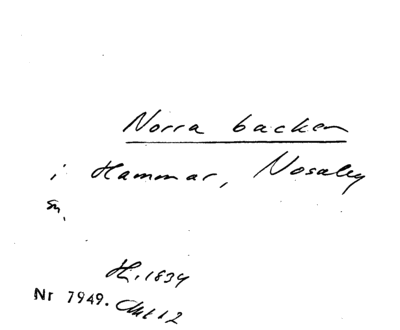 Norra backen
i Hammar, Nosaby
sn.
H. 1834
Nr 7949. Akt 12